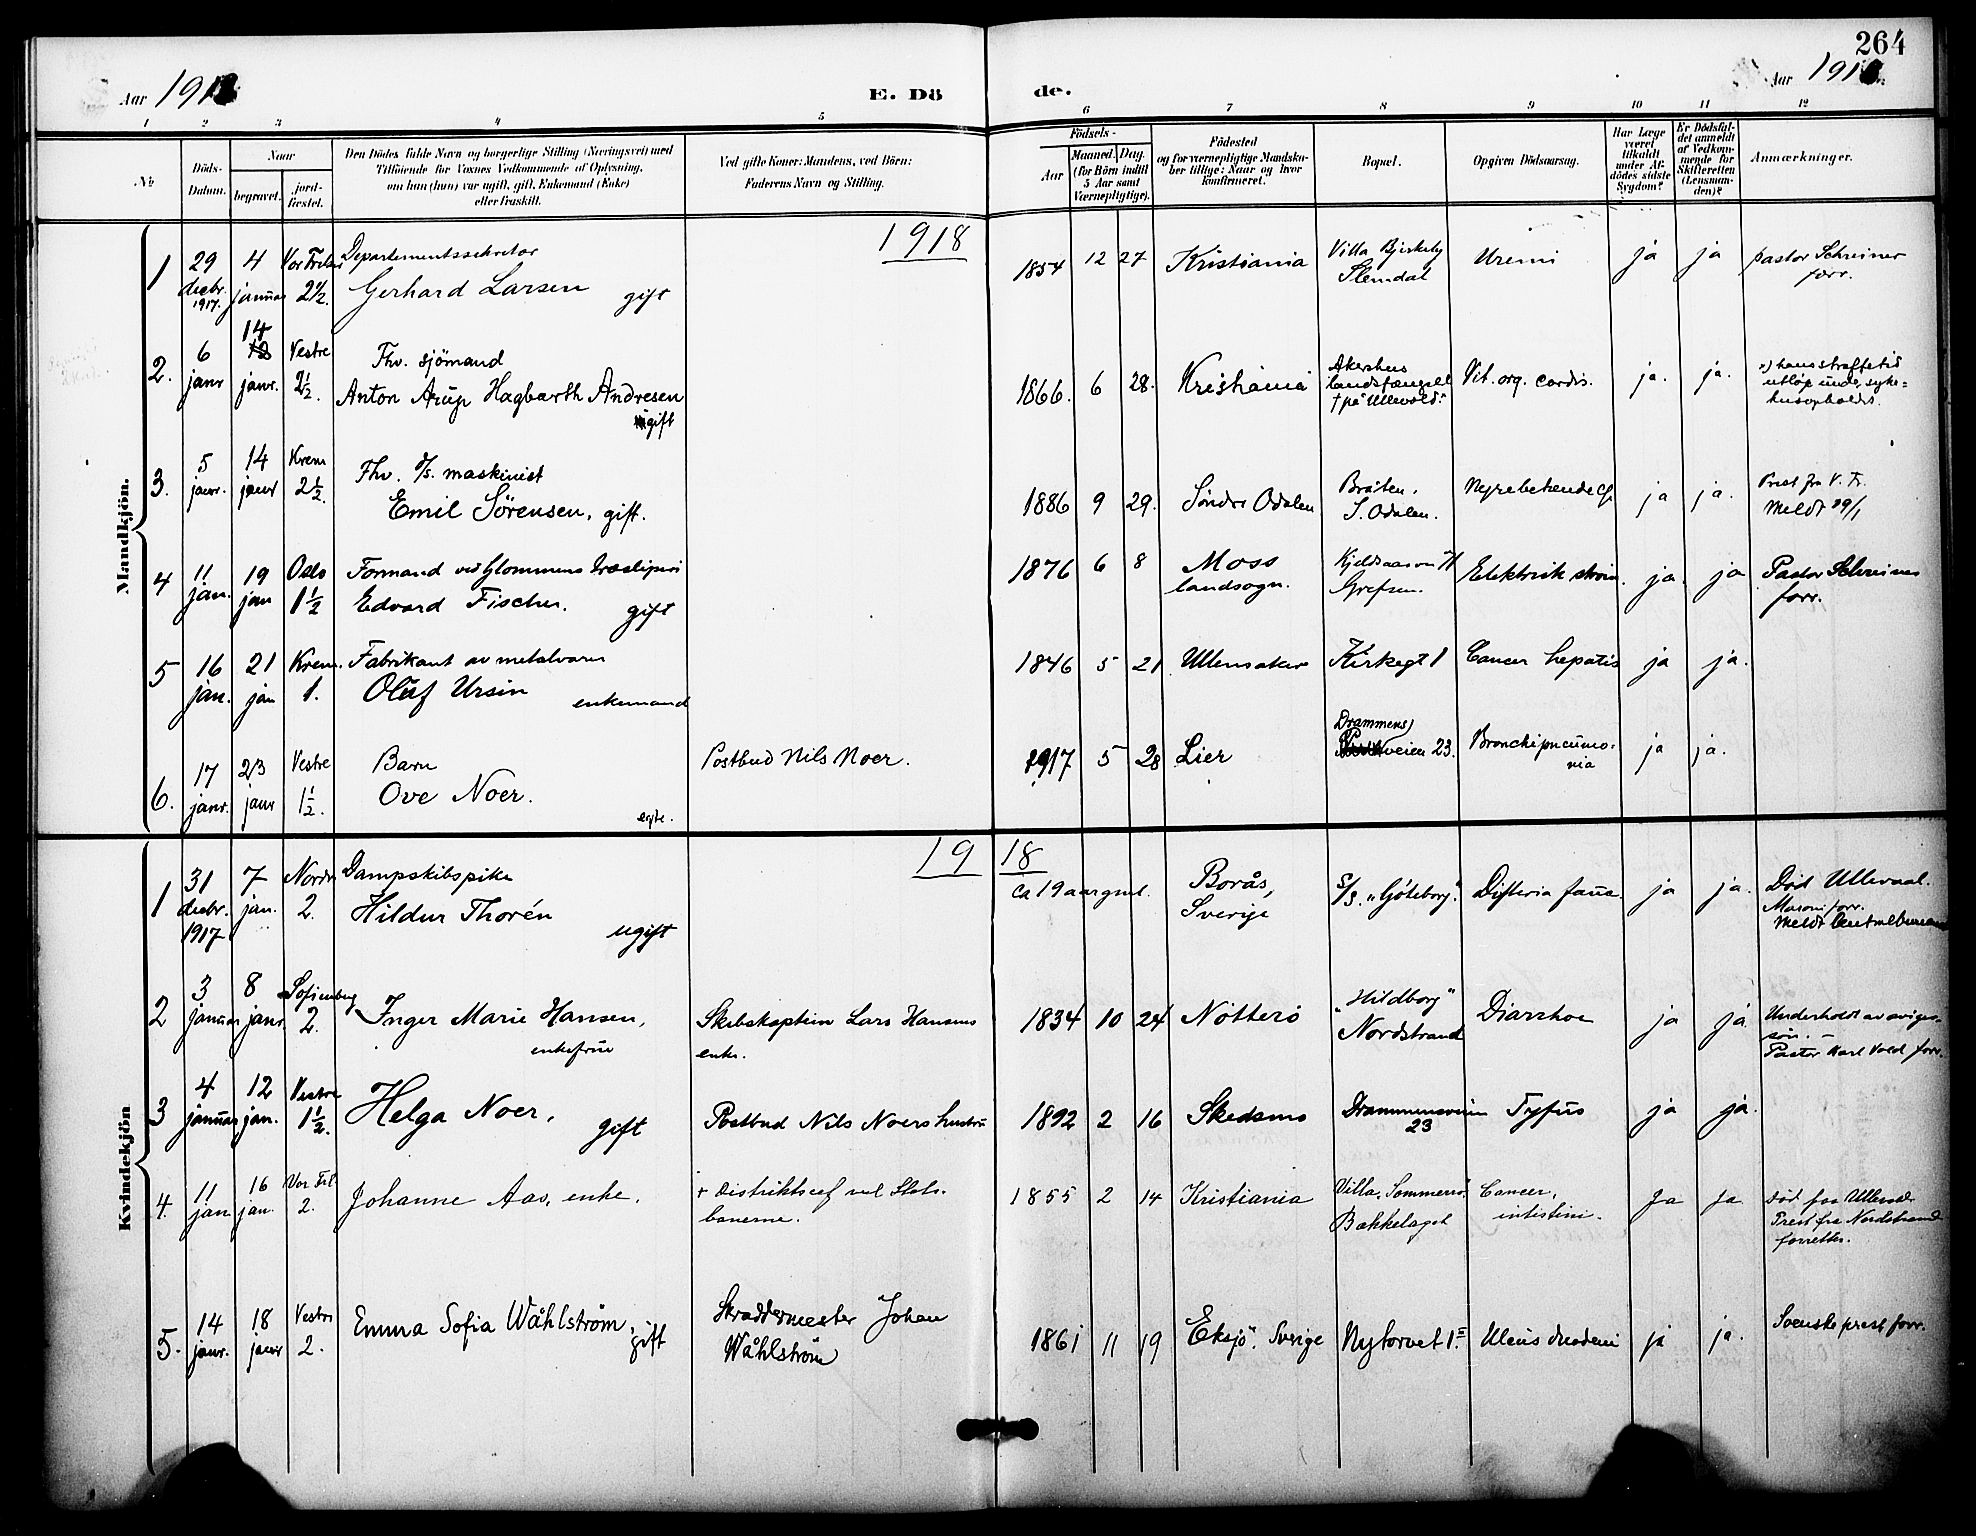 264
Aar 1918
E. Dö
de.
Aar 1918
1 2 3 4 5 6 7 8 9 10 11 12
№
Döds-
Datum.
Naar
begravet.
jord-
fæstet.
Den Dödes fulde Navn og borgerlige Stilling (Næringsvei) med
Tilföiende for Voxnes Vedkommende af Oplysning,
om han (hun) var ugift, gift, Enkemand (Enke)
eller fraskilt.
Ved gifte Koner: Mandens, ved Börn:
Faderens Navn og Stilling.
Födsels-
Aar
Maaned. Dag.
(for Börn indtil
5 Aar samt
Værnepligtige).
Födested
og for værnepligtige Mandska-
ber tillige: Naar og hvor
konfirmeret.
Bopæl.
Opgiven Dödsaarsag.
Har Læge
været
tilkaldt
under Af-
dödes sidste
Sygdom?
Er Dödsfal-
det anmeldt
af Vedkom-
mende for
Skifteretten
(Lensman-
den)?
Anmærkninger.
Mandkjön.
1918
1
29
decbr.
1917.
4
januar
Vor Frelser
2½.
Departementssekretær
Gerhard Larsen
gift
1854 12 27
Kristiania
Villa Bjerkely
Slemdal
Uremi
ja
ja
pastor Schreiner
forr.
2.
6
janr
14
janr.
Vestre
2½.
Fhv. sjömand
Anton Arup Hagbarth Andresen
gift
1866. 6 28.
Kristiania
Akershus
landsfængsel
† på Ullevold.
Vit. org. cordis.
ja.
ja.
hans straffetid
utlöp under syke=
husopholdet.
3.
5
janr.
14
janr
Krem
2½.
Fhv. o/s. maskinist
Emil Sörensen, gift.
1886 9 29.
Söndre Odalen
Bråten.
S. Odalen.
Nyrebetendelse
ja
ja.
Prest fra V. Fr.
Meldt 29/1
4
11
jan.
19
jan
Oslo
1½
Formand ved Glommens Træsliperi
Edvard Fischer.
gift
1876 6 8
Moss
landsogn.
Kjeldsaasvn
Grefsen.
Elektrisk ström.
ja.
ja
Pastor Schreiner
forr.
5
16
jan.
21
jan
Krem.
1.
Fabrikant av metalvarer
Oluf Ursin
enkemand
1846 5 21
Ullensaker
Kirkegt 1
Cancer hepatis
ja
ja.
6.
17
janr.
23
janr
Vestre
1½.
Barn
Ove Noer.
egte.
Postbud Nils Noer.
1917 5 28
Lier
Drammens
veien 23.
Bronchipneumo-
nia
ja
ja.
Kvindekjön
1918
1
31
decbr.
1917
7
jan.
Nordre
2.
Dampskibspike
Hildur Thorén
ugift
ca 19 aar gml.
Borås,
Sverige
S/S. "Göteborg".
Difteria fauc.
ja
ja.
Död Ullevaal.
Maroni forr.
Meldt Centralbureau
2
3
januar
8
janr.
Sofienberg
2.
Inger Marie Hansen,
enkefrue
Skibskaptein Lars Hansens
enke.
1834 10 24
Nötterö
"Hildborg"
Nordstrand
Diarrhoe
ja
ja
Underholdt av sviger-
sön. –
Pastor Karl Vold forr.
3
4
januar
12
jan.
Vestre
1½.
Helga Noer,
gift
Postbud Nils Noers hustru
1892 2 16
Skedsmo
Drammensveien
23
Tyfus
ja
ja.
4.
11
jan
16
jan.
Vor Frel
2.
Johanne Aas, enke.
+ distriktschef ved Stats-
banerne.
1855 2 14
Kristiania
Villa "Sommerro"
Bækkelaget
Cancer,
intistini.
Ja
Ja
Död paa Ullevaal
Prest fra Nordstrand
forretter.
5.
14
janr.
18
janr
Vestre
2.
Emma Sofia Wåhlström,
gift
Skræddermester Johan
Wåhlström
1861 11 19
"Eksjö". Sverige
Nytorvet 1
Ulcus duodeni
ja
ja.
Svenske prest forr.